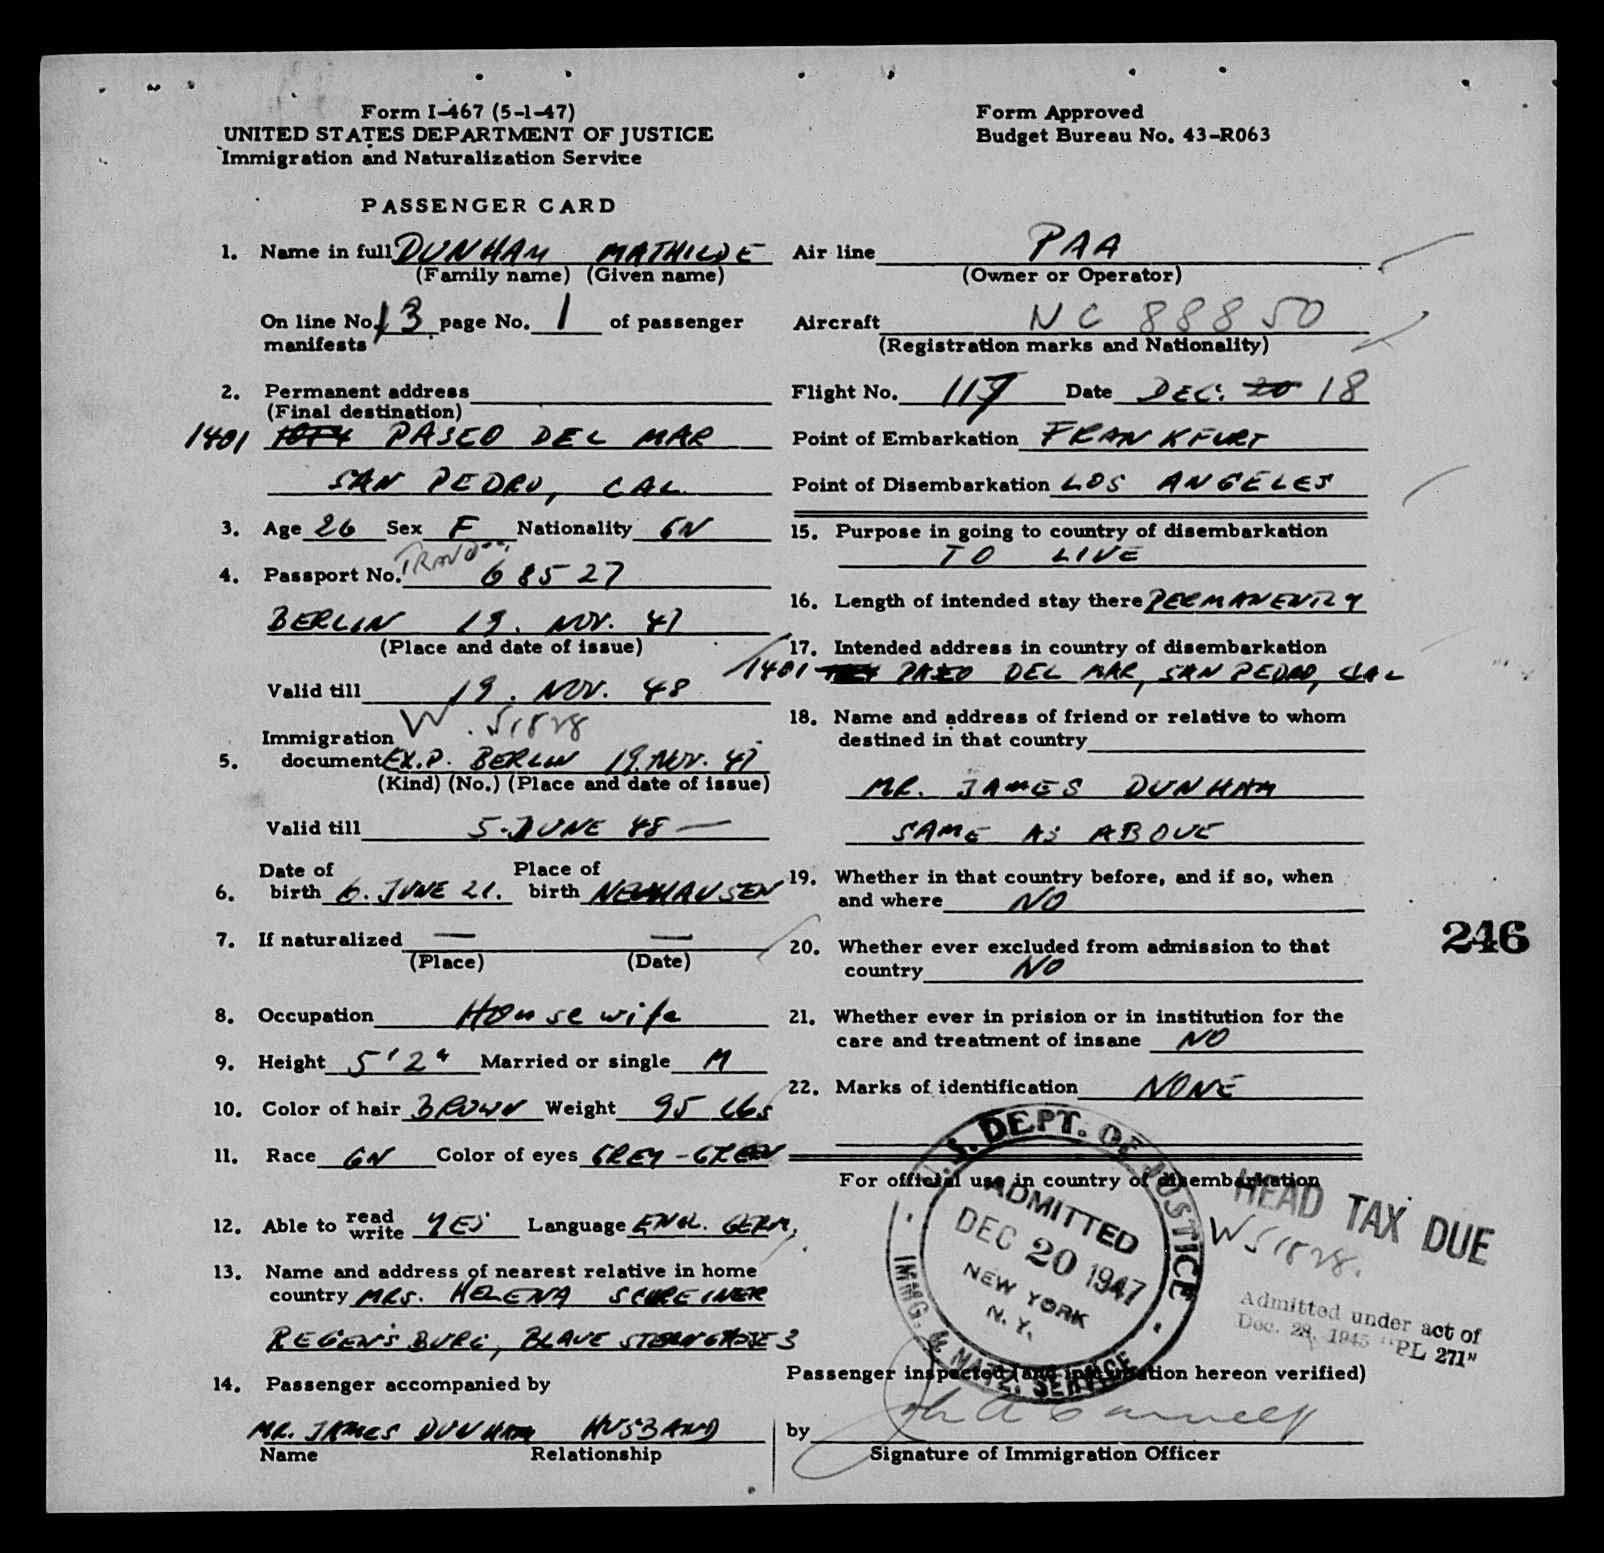 Form I-467 (5-1-47)
UNITED STATES DEPARTMENT OF JUSTICE
Immigration and Naturalization Service
Form Approved
Budget Bureau No. 43-R063
PASSENGER CARD
1. Name in full DUNHAM MATHILDE
(Family name) (Given name)
On line No. 13 page No. 1 of passenger
manifests
2. Permanent address
(Final destination)
1401 PASEO DEL MAR
SAN PEDRO, CAL.
3. Age 26 Sex F Nationality GN
4. Passport No. 68527
BERLIN 19. NOV. 47
(Place and date of issue)
Valid till 19. NOV. 48
W. 51828
Immigration
5. document EX.P. BERLIN 19. NOV. 47
(Kind) (No.) (Place and date of issue)
Valid till 5. JUNE 48 —
Date of Place of
6. birth 6. JUNE 21. birth NEUHAUSEN
7. If naturalized — —
(Place) (Date)
8. Occupation Housewife
9. Height 5'2" Married or single M
10. Color of hair BROWN Weight 95 Lbs
11. Race GN Color of eyes GREY-GREEN
12. Able to read write YES Language ENGL. GERM.
13. Name and address of nearest relative in home
country MRS. HELENA
REGENSBURG, 3
14. Passenger accompanied by
MR. JAMES DUNHAM HUSBAND
Name Relationship
Air line PAA
(Owner or Operator)
Aircraft NC 88850
(Registration marks and Nationality)
Flight No. 117 Date DEC. 20 18
Point of Embarkation FRANKFURT
Point of Disembarkation LOS ANGELES
15. Purpose in going to country of disembarkation
TO LIVE
16. Length of intended stay there PERMANENTLY
17. Intended address in country of disembarkation
1401 PASEO DEL MAR, SAN PEDRO, CAL
18. Name and address of friend or relative to whom
destined in that country
MR. JAMES DUNHAM
SAME AS ABOVE
19. Whether in that country before, and if so, when
and where NO
20. Whether ever excluded from admission to that
country NO
21. Whether ever in prision or in institution for the
care and treatment of insane NO
22. Marks of identification NONE
For official use in country of disembarkation
U.S. DEPT. OF JUSTICE
ADMITTED
DEC 20 1947
NEW YORK
N. Y.
IMMG. & NATZ. SERVICE
HEAD TAX DUE
W 51828.
Admitted under act of
Dec. 28, 1945 "PL 271"
Passenger inspected (and information hereon verified)
by
Signature of Immigration Officer
246